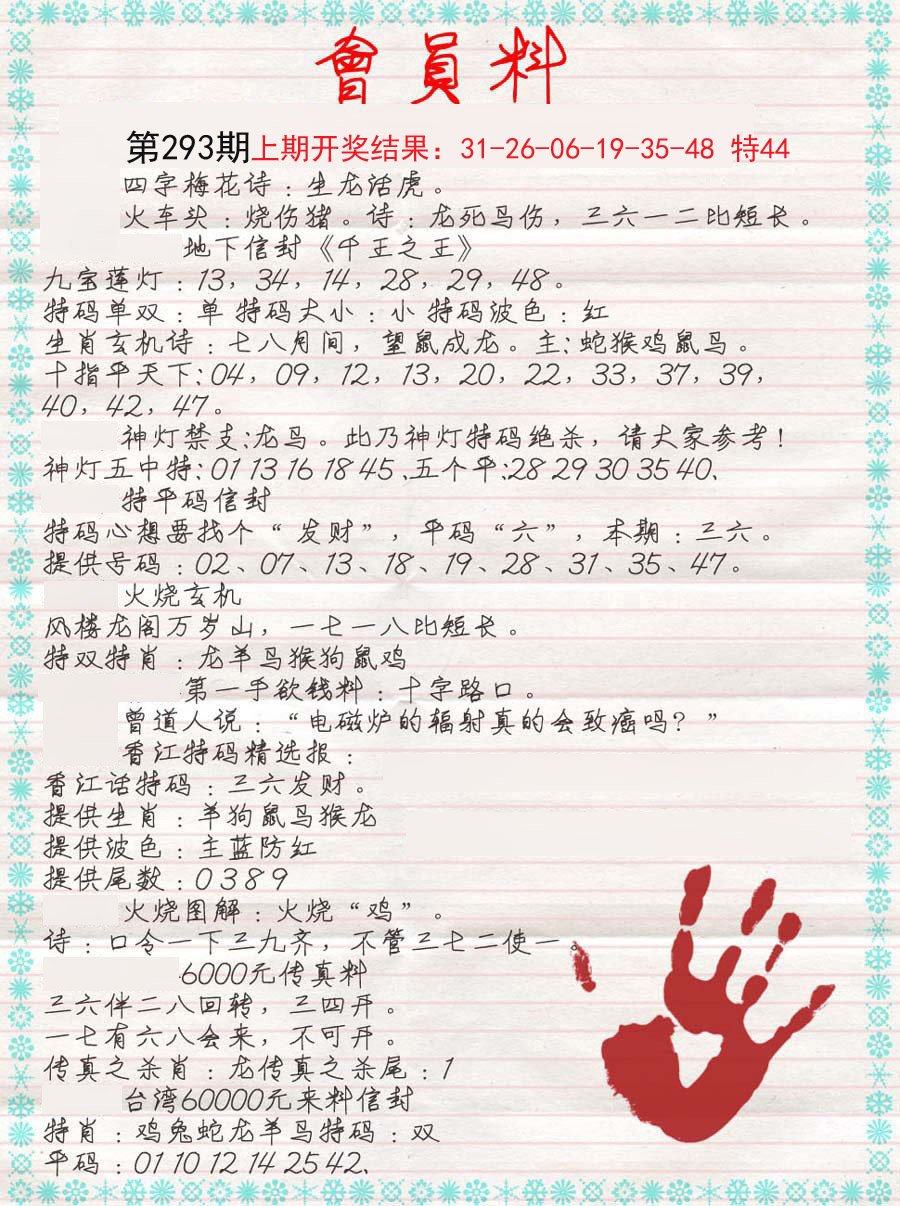 會員料
第293期上期开奖结果：31-26-06-19-35-48 特44
四字梅花诗：生龙活虎。
火车头：烧伤猪。诗：龙死马伤，三六一二比短长。
地下信封《千王之王》
九宝莲灯：13，34，14，28，29，48。
特码单双：单 特码大小：小 特码波色：红
生肖玄机诗：七八月间，望鼠成龙。主：蛇猴鸡鼠马。
十指平天下：04，09，12，13，20，22，33，37，39，
40，42，47。
神灯禁支：龙马。此乃神灯特码绝杀，请大家参考！
神灯五中特：01 13 16 18 45、五个平：28 29 30 35 40、
特平码信封
特码心想要找个“发财”，平码“六”，本期：三六。
提供号码：02、07、13、18、19、28、31、35、47。
火烧玄机
风楼龙阁万岁山，一七一八比短长。
特双特肖：龙羊马猴狗鼠鸡
第一手欲钱料：十字路口。
曾道人说：“电磁炉的辐射真的会致癌吗？”
香江特码精选报：
香江话特码：三六发财。
提供生肖：羊狗鼠马猴龙
提供波色：主蓝防红
提供尾数：0 3 8 9
火烧图解：火烧“鸡”。
诗：口令一下三九齐，不管三七二使一。
6000元传真料
三六伴二八回转，三四开。
一七有六八会来，不可开。
传真之杀肖：龙传真之杀尾：1
台湾60000元来料信封
特肖：鸡兔蛇龙羊马特码：双
平码：01 10 12 14 25 42、